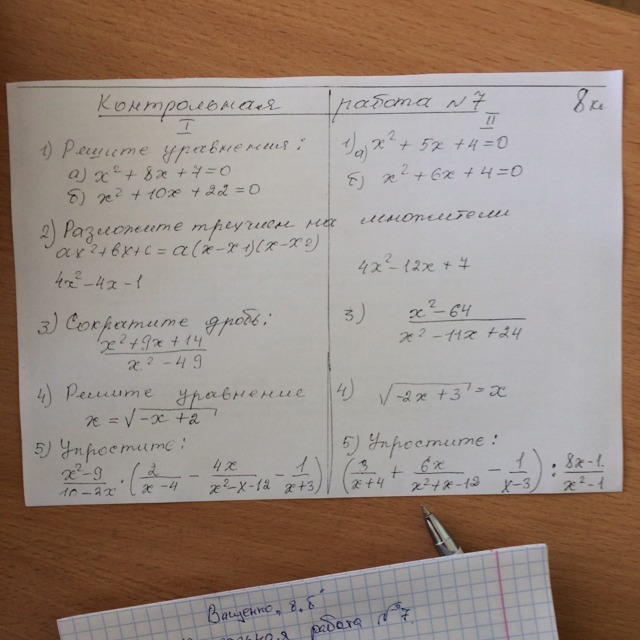 Контрольная работа №7 8 кл
I
1) Решите уравнения:
а) x² + 8x + 7 = 0
б) x² + 10x + 22 = 0
2) Разложите трехчлен на множители
ax² + bx + c = a(x - x1)(x - x2)
4x² - 4x - 1
3) Сократите дробь:
x² + 9x + 14
x² - 49
4) Решите уравнение
x = √-x + 2
5) Упростите:
x² - 9 / 10 - 2x · (2 / x - 4 - 4x / x² - x - 12 - 1 / x + 3)
II
1) а) x² + 5x + 4 = 0
б) x² + 6x + 4 = 0
4x² - 12x + 7
3)
x² - 64
x² - 11x + 24
4) √-2x + 3 = x
5) Упростите:
(3 / x + 4 + 6x / x² + x - 12 - 1 / x - 3) : 8x - 1 / x² - 1
Ващенко, 8 „Б"
работа №7